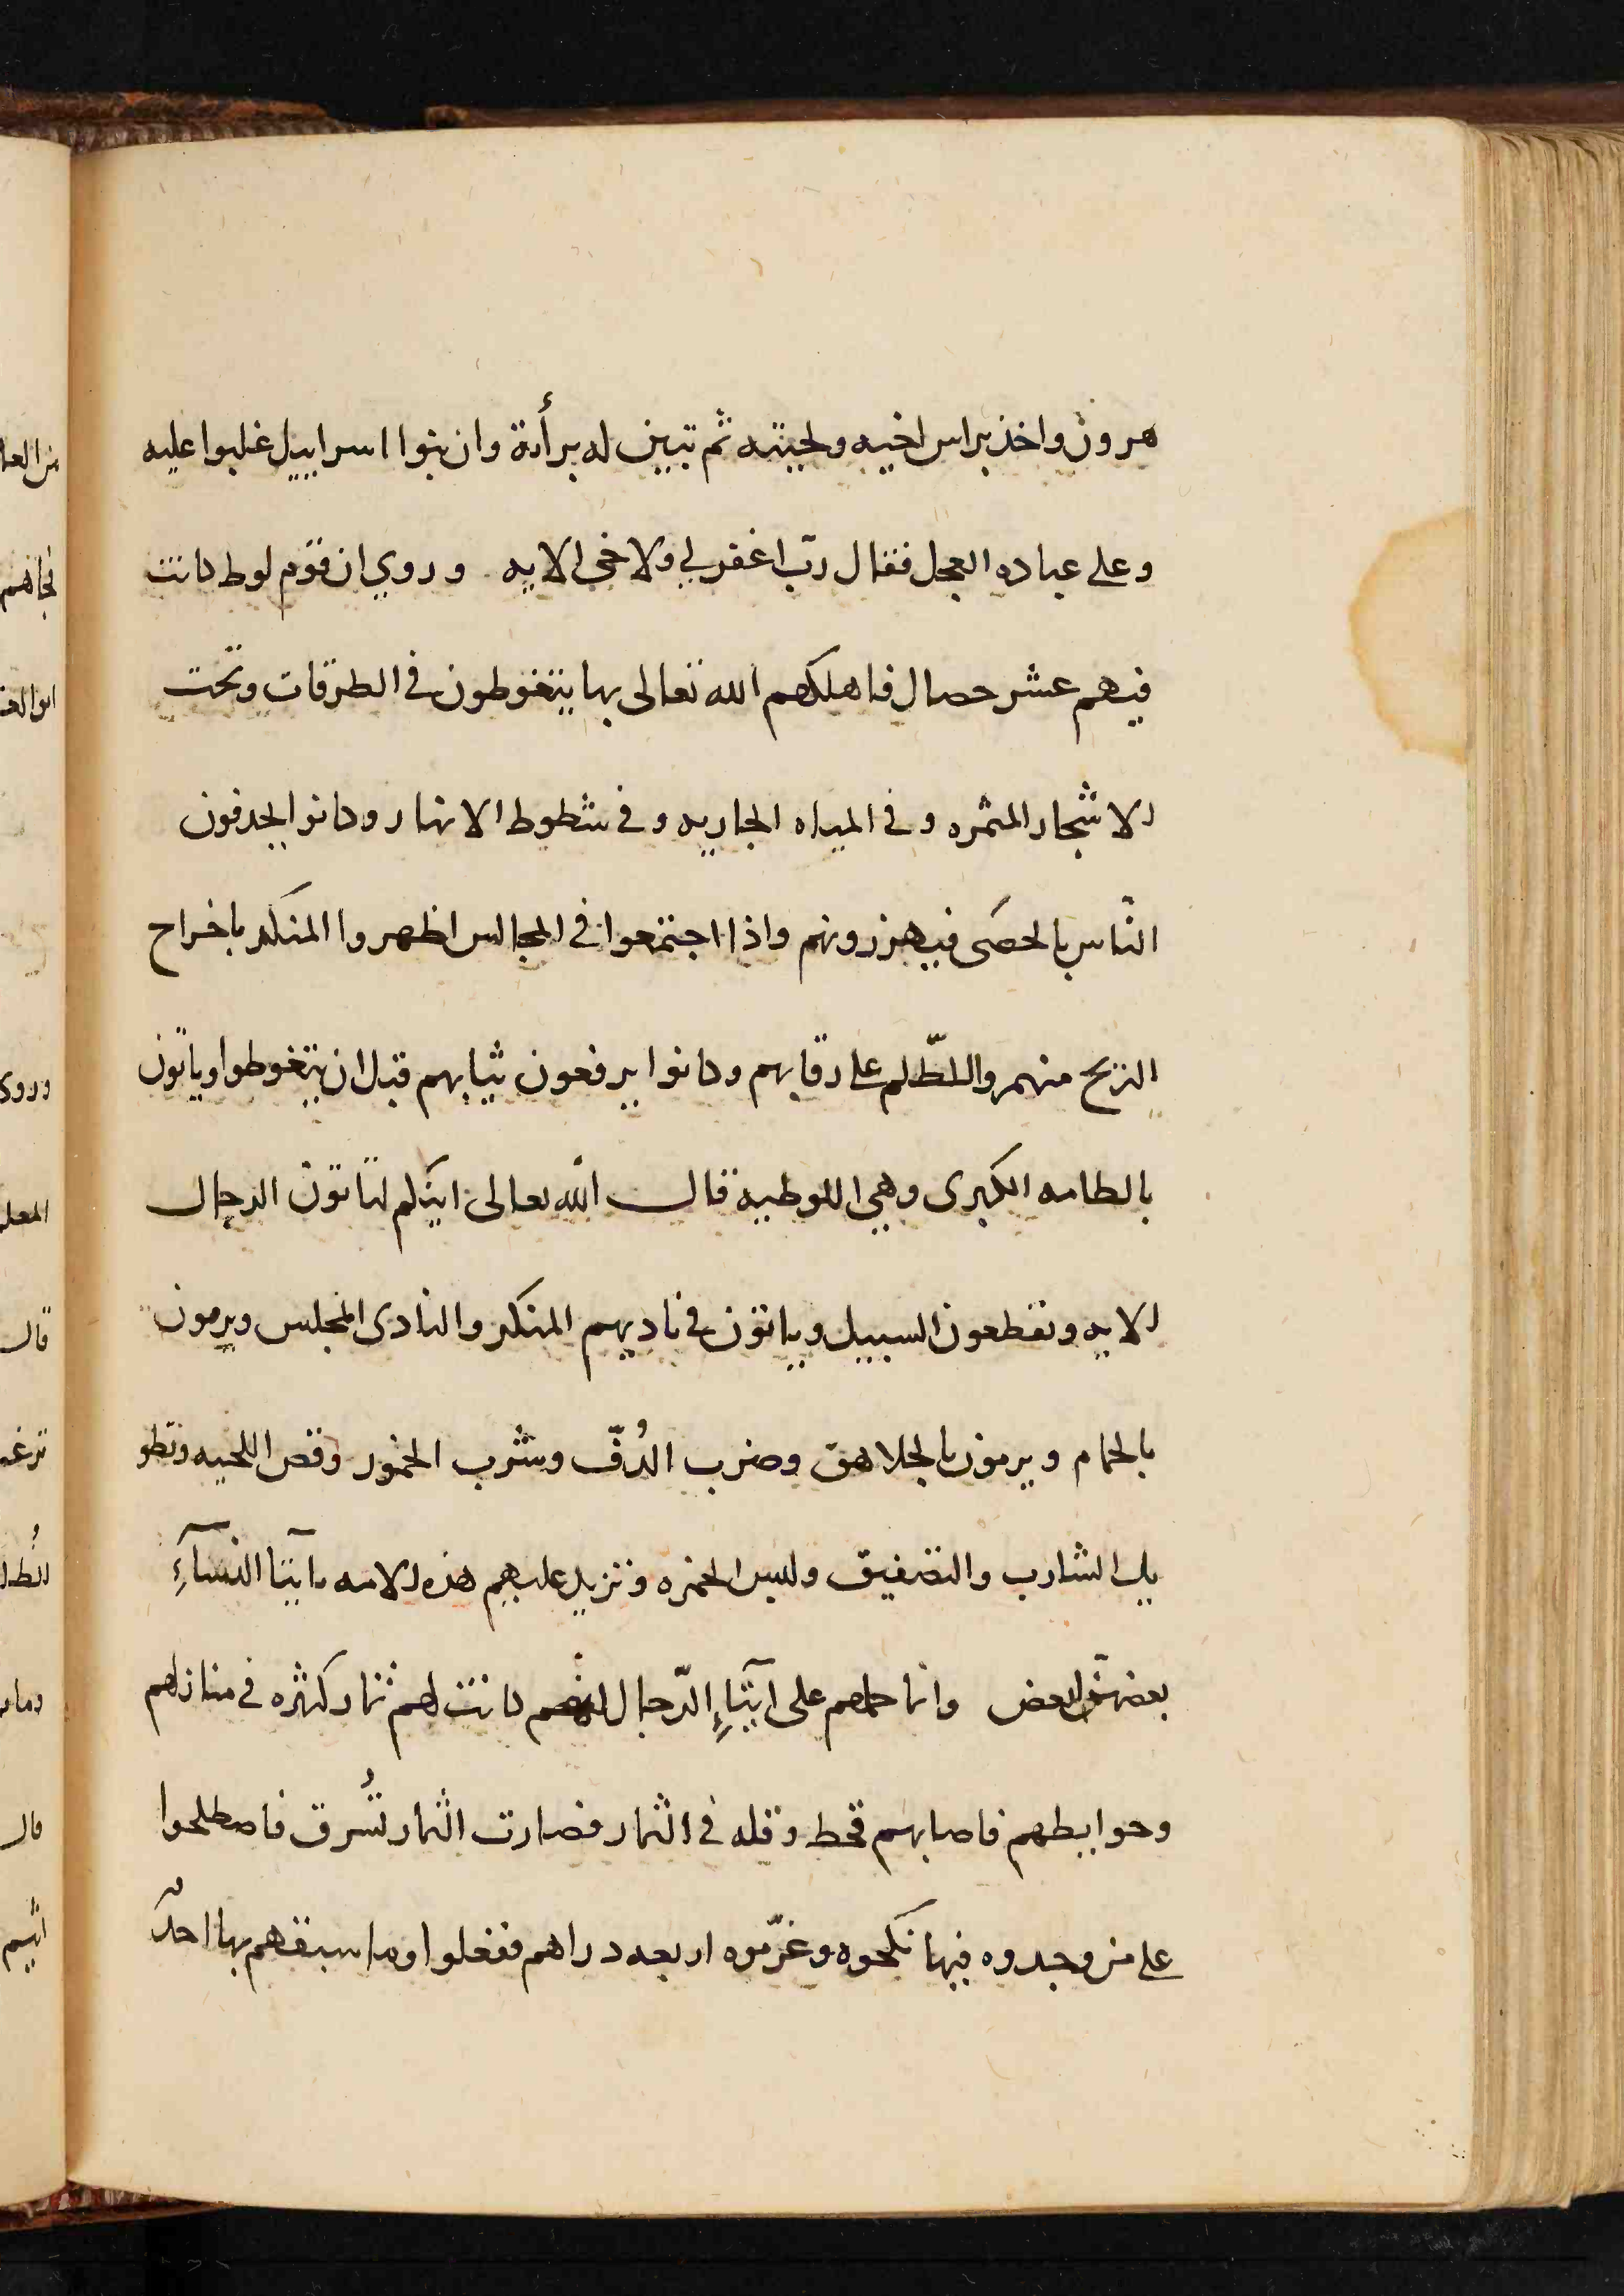 هرون واخذ براس اخيه ولحيته ثم تبين له برأة وان بنوا اسراييل غلبوا عليه
وعلى عباده العجل فقال ربّ اغفر لي ولاخي الايه وروي ان قوم لوط كانت
فيهم عشر خصال فاهلكهم الله تعالى بها يتغوطون في الطرقات وتحت
الاشجار المثمره وفي المياه الجاريه وفي شطوط الانهار وكانوا يحدفون
النّاس بالحصى فيهزرونهم واذا اجتمعوا في المجالس اظهروا المنكر باخراج
الريح منهم واللطّم على رقابهم وكانوا يرفعون ثيابهم قبل ان يتغوطوا وياتون
بالطامه الكبرى وهي اللوطيه قال الله تعالى اينكم لتاتون الرجال
الايه وتقطعون السبيل وياتون في ناديهم المنكر والنادى المجلس ويرمون
بالحمام ويرمون بالجلاهق وضرب الدُفّ وشرب الخمور وقص اللحيه وتطو
يل الشارب والتصفيق ولبس الخمره وتزيد عليهم هذه الامه باتيآن النسآءِ
بعضهنّ لبعض وانما حملهم على اتيآنِ الرّجال انهم كانت لهم ثمار كثره في منازلهم
وحوايطهم فاصابهم قحط وقله في الثمار فصارت الثمار تُسرق فاصطلحوا
على من وجدوه فيها نكحوه وغرّموه اربعه دراهم ففعلوا وما سبقهم بها احدٌ
من العذا
وروى
قال
قال